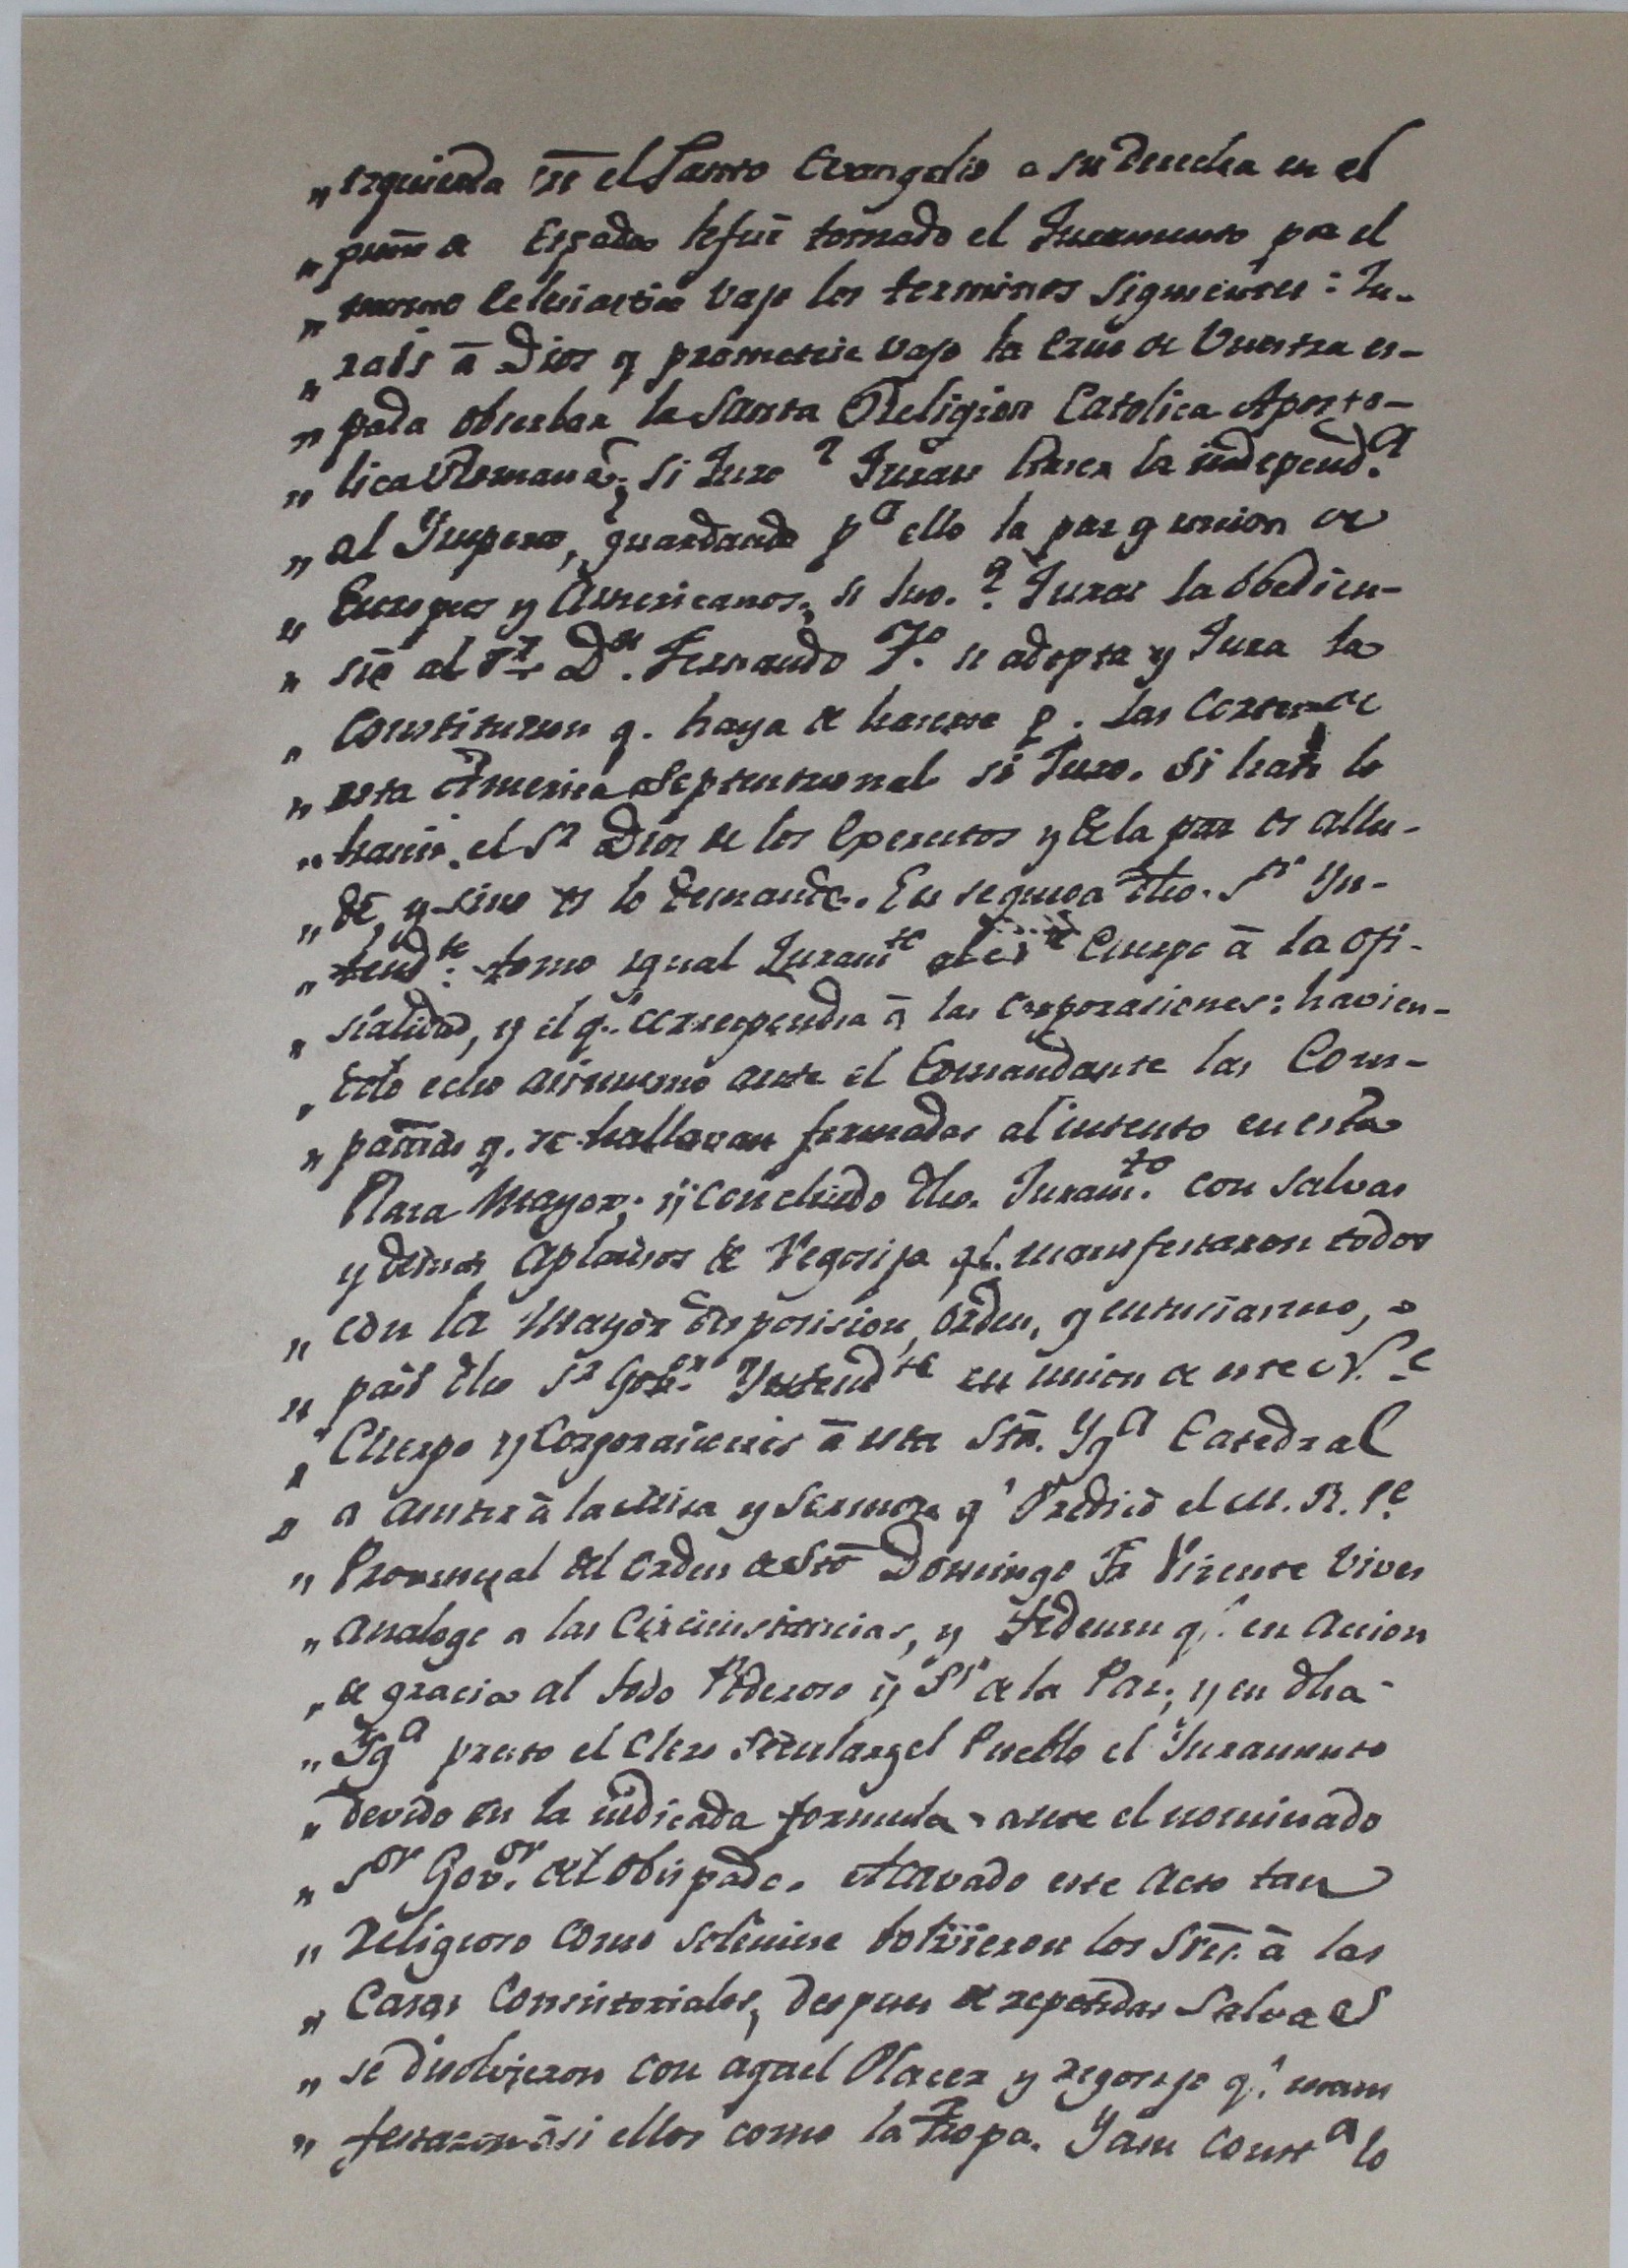 „ izquierda en el Santo Evangelio a su derecha en el
„ puño de Espada le fue tomado el Juramento por el
„ mismo vajo los terminos siguientes: Ju-
„ rais á Dios y prometeis vajo la Cruz de Vuestra es-
„ pada obserbar la Santa Religion Catolica Aposto-
„ lica Romana; si Juro? Jurais hacer la independ.a
„ al Imperio, guardando p.a ello la paz y union de
„ Europeos y Americanos; si Juro.? Jurais la obedien-
„ sia al Sr Dn. Fernando 7.o si adopta y Jura la
„ Constitucion q. haya de hacerse p. las Cortes de
„ esta America Septentrional si Juro. Si hasi lo
„ haceis, el Sr Dios de los Exercitos y de la paz os allu-
„ de, y sino os lo demande. En seguida dho. Sr Yn-
„ tend.te tomo igual Juramto al Cuerpo á la ofi-
„ sialidad, y el q. correspondia á las Corporasiones: havien-
„ dolo echo asimismo ante el Comandante las Com-
„ pañias q. se hallavan formadas al intento en esta
Plaza Mayor; y concluido dho. Juram.to con salvas
y demas Aplausos de Regosijo q. manifestaron todos
„ con la Mayor disposision, orden, y entusiasmo,
„ pasó dho Sr Gov.or Yntend.te en union de este N.e
„ Cuerpo y Corporaciones á esta Sta. Yg.a Catedral
„ a asistir á la Misa y Sermon q. Predicó el M. R. P.e
„ Provincial del orden de Sto Domingo Fr Vizente Vives
„ analogo a las Circunstancias, y Tedeum q. en Accion
„ de gracias al todo Poderoso y Sr de la Paz; y en dha
„ Yg.a presto el Clero Secular y el Pueblo el Juramento
„ devido en la indicada formula ante el nominado
„ Sor Gov.or del Obispado. Acavado este Acto tan
„ Religioso como solemne bolvieron los Sres. á las
„ Casas Consistoriales, despues de repetidas Salvas
„ se disolvieron con aquel Placer y regosijo q. mani
„ festaron asi ellos como la tropa. Y asu const.a lo